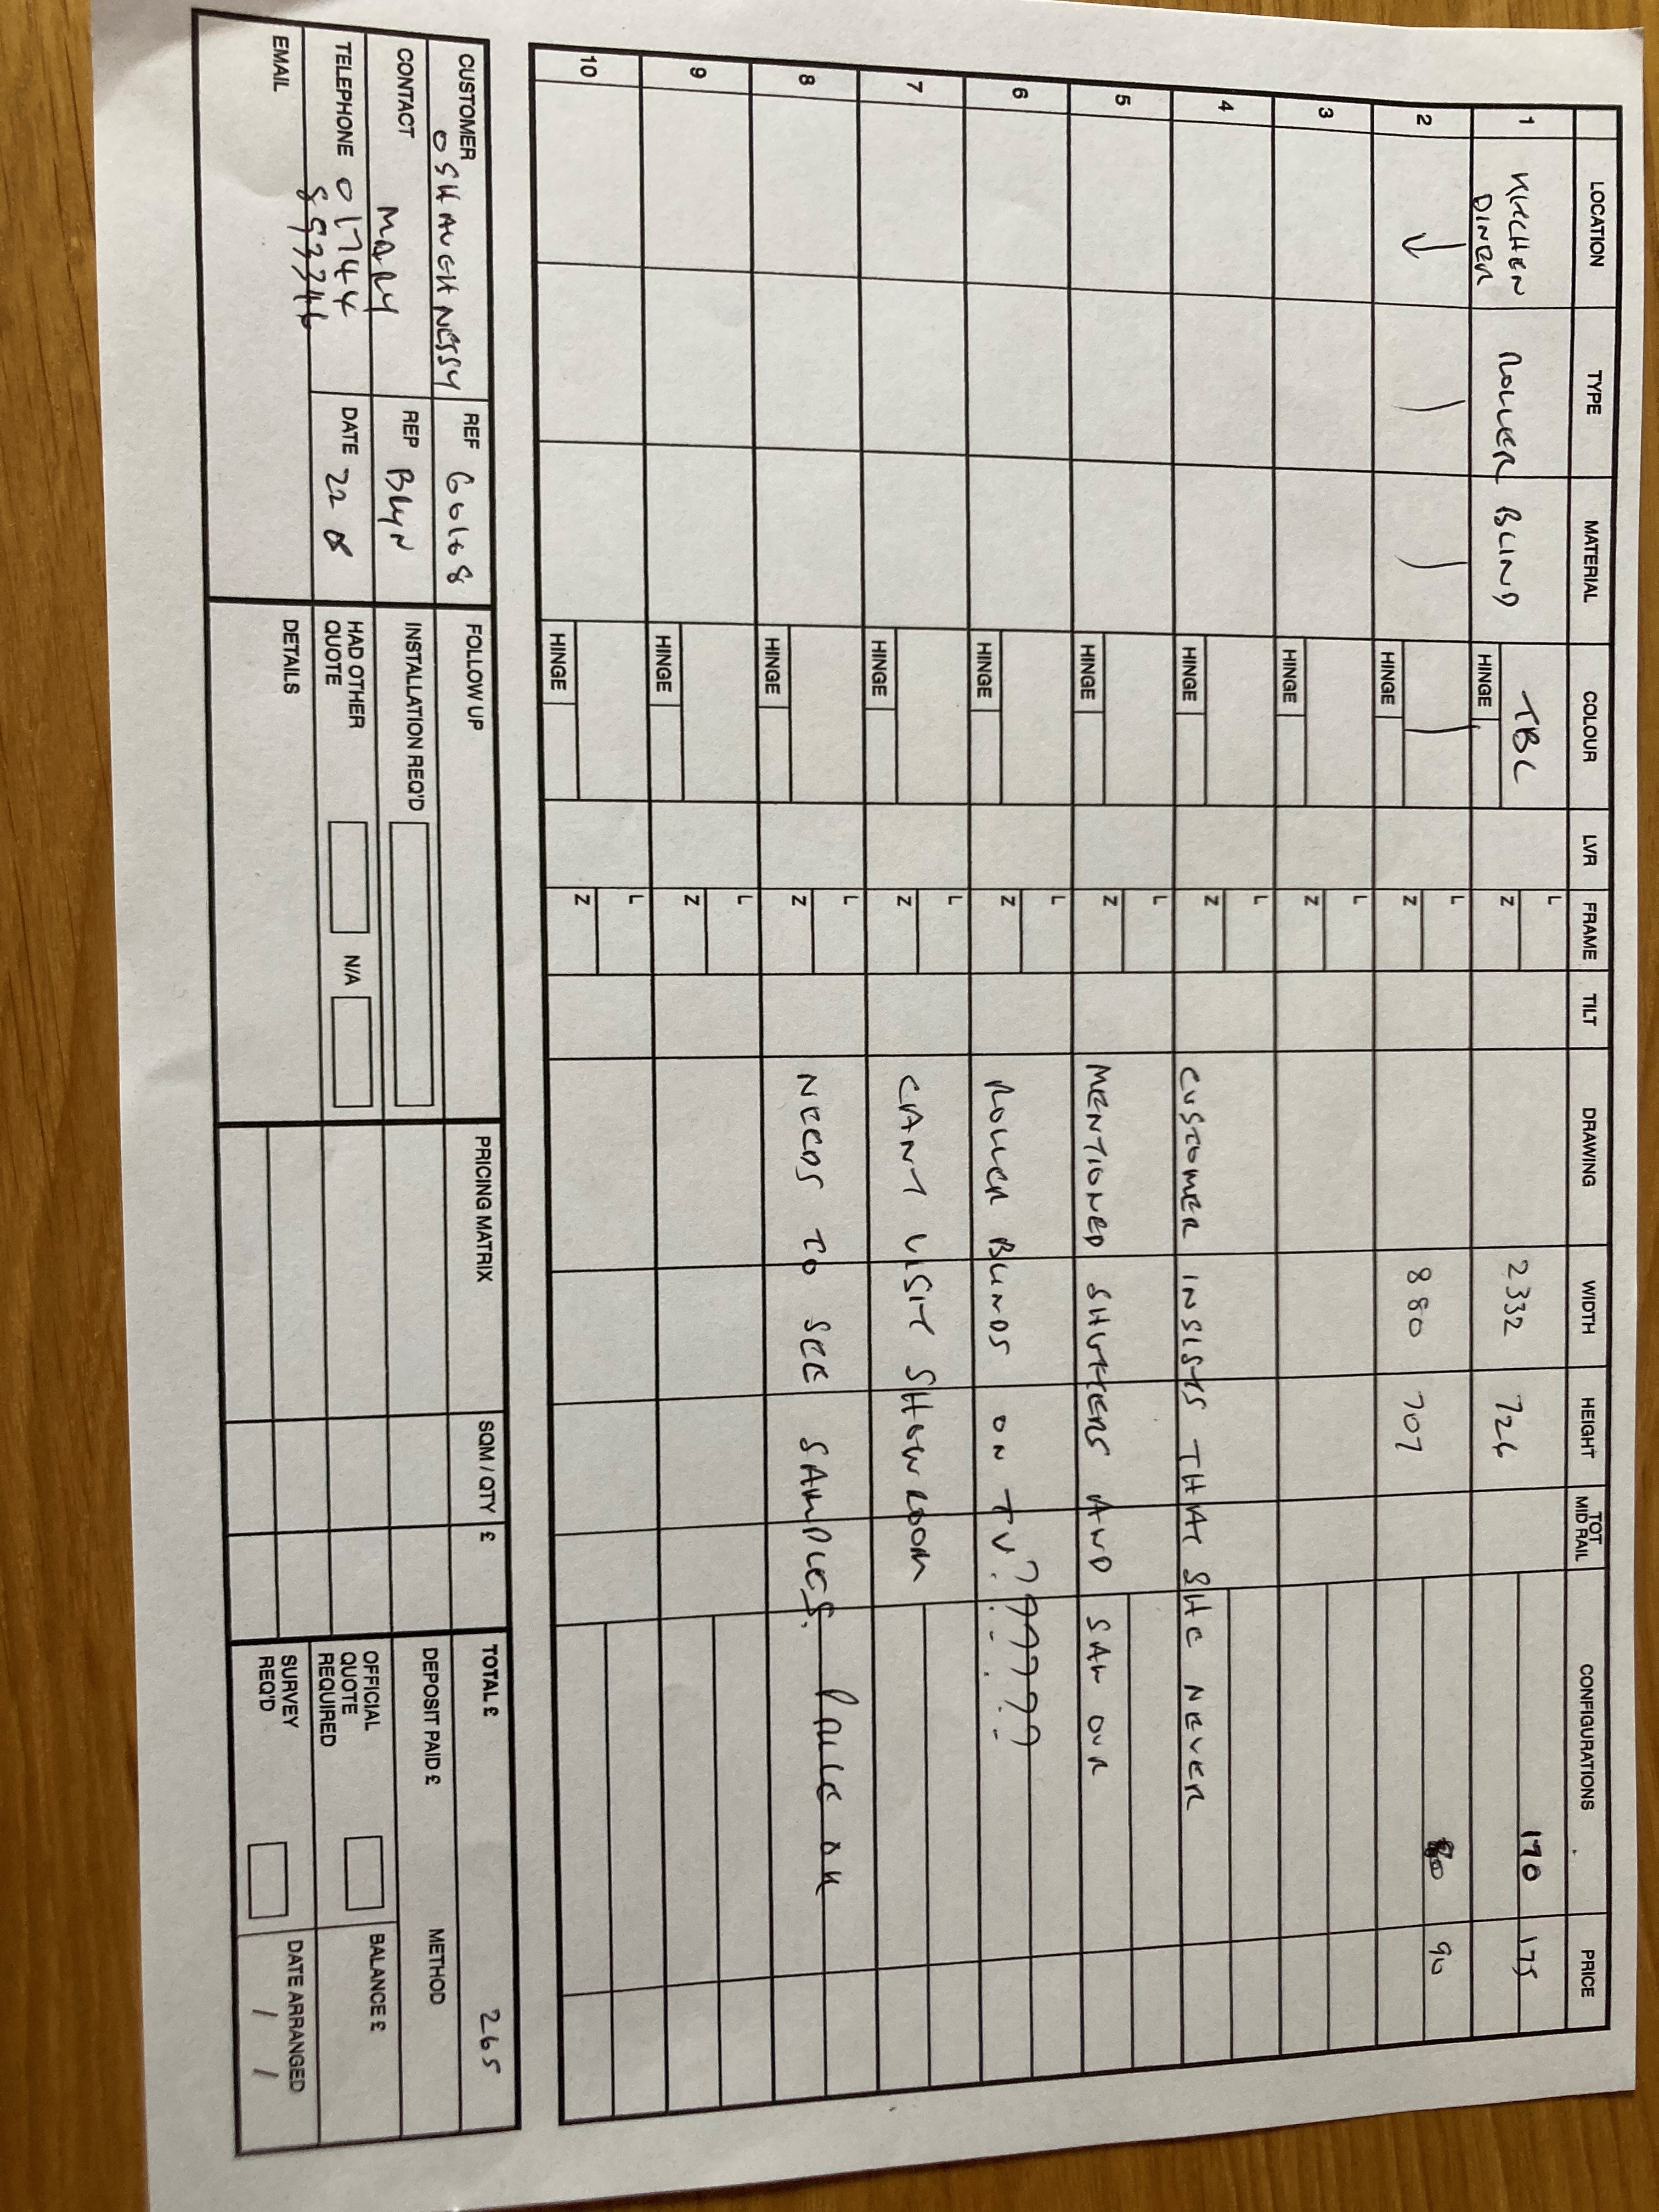 LOCATION TYPE MATERIAL COLOUR LVR FRAME TILT DRAWING WIDTH HEIGHT TOT MID RAIL CONFIGURATIONS PRICE
1 KITCHEN DINER ROLLER BLIND TBC HINGE L Z 2332 726 170 175
2 HINGE L Z 880 707 90
3 HINGE L Z
4 HINGE L Z CUSTOMER INSISTS THAT SHE NEVER
5 HINGE L Z MENTIONED SHUTTERS AND SAW OUR
6 HINGE L Z ROLLER BLINDS ON TV???????
7 HINGE L Z CANT VISIT SHOWROOM
8 HINGE L Z NEEDS TO SEE SAMPLES. PRICE OK
9 HINGE L Z
10 HINGE L Z
CUSTOMER OSHAUGHNESSY REF G0168 FOLLOW UP PRICING MATRIX SQM / QTY £ TOTAL £ 265
CONTACT MARY REP BRYN INSTALLATION REQ'D DEPOSIT PAID £ METHOD
TELEPHONE 01744 DATE 22 8 HAD OTHER QUOTE N/A OFFICIAL QUOTE REQUIRED BALANCE £
EMAIL DETAILS SURVEY REQ'D DATE ARRANGED / /